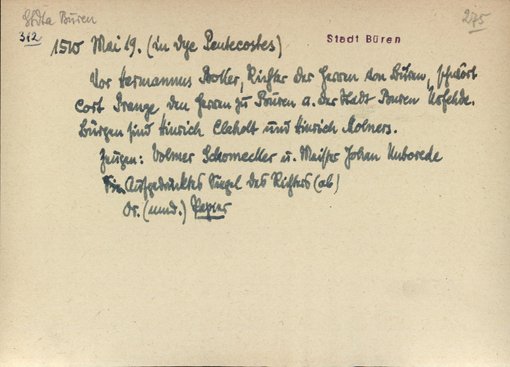 Stdta Büren
275
372
Stadt Büren
1510 Mai 19. (in dye Pentecostes)
Vor Hermannus Potter, Richter der Herren von Büren, schwört
Cort Prange den Herren zu Büren u. der Stadt Büren Urfehde.
Bürgen sind Hinrich Cleholt und Hinrich Molners.
Zeugen: Volmer Schomecker u. Meister Johan Unborede
Aufgedrücktes Siegel des Richters (ab)
Or. (nnd.) Papier